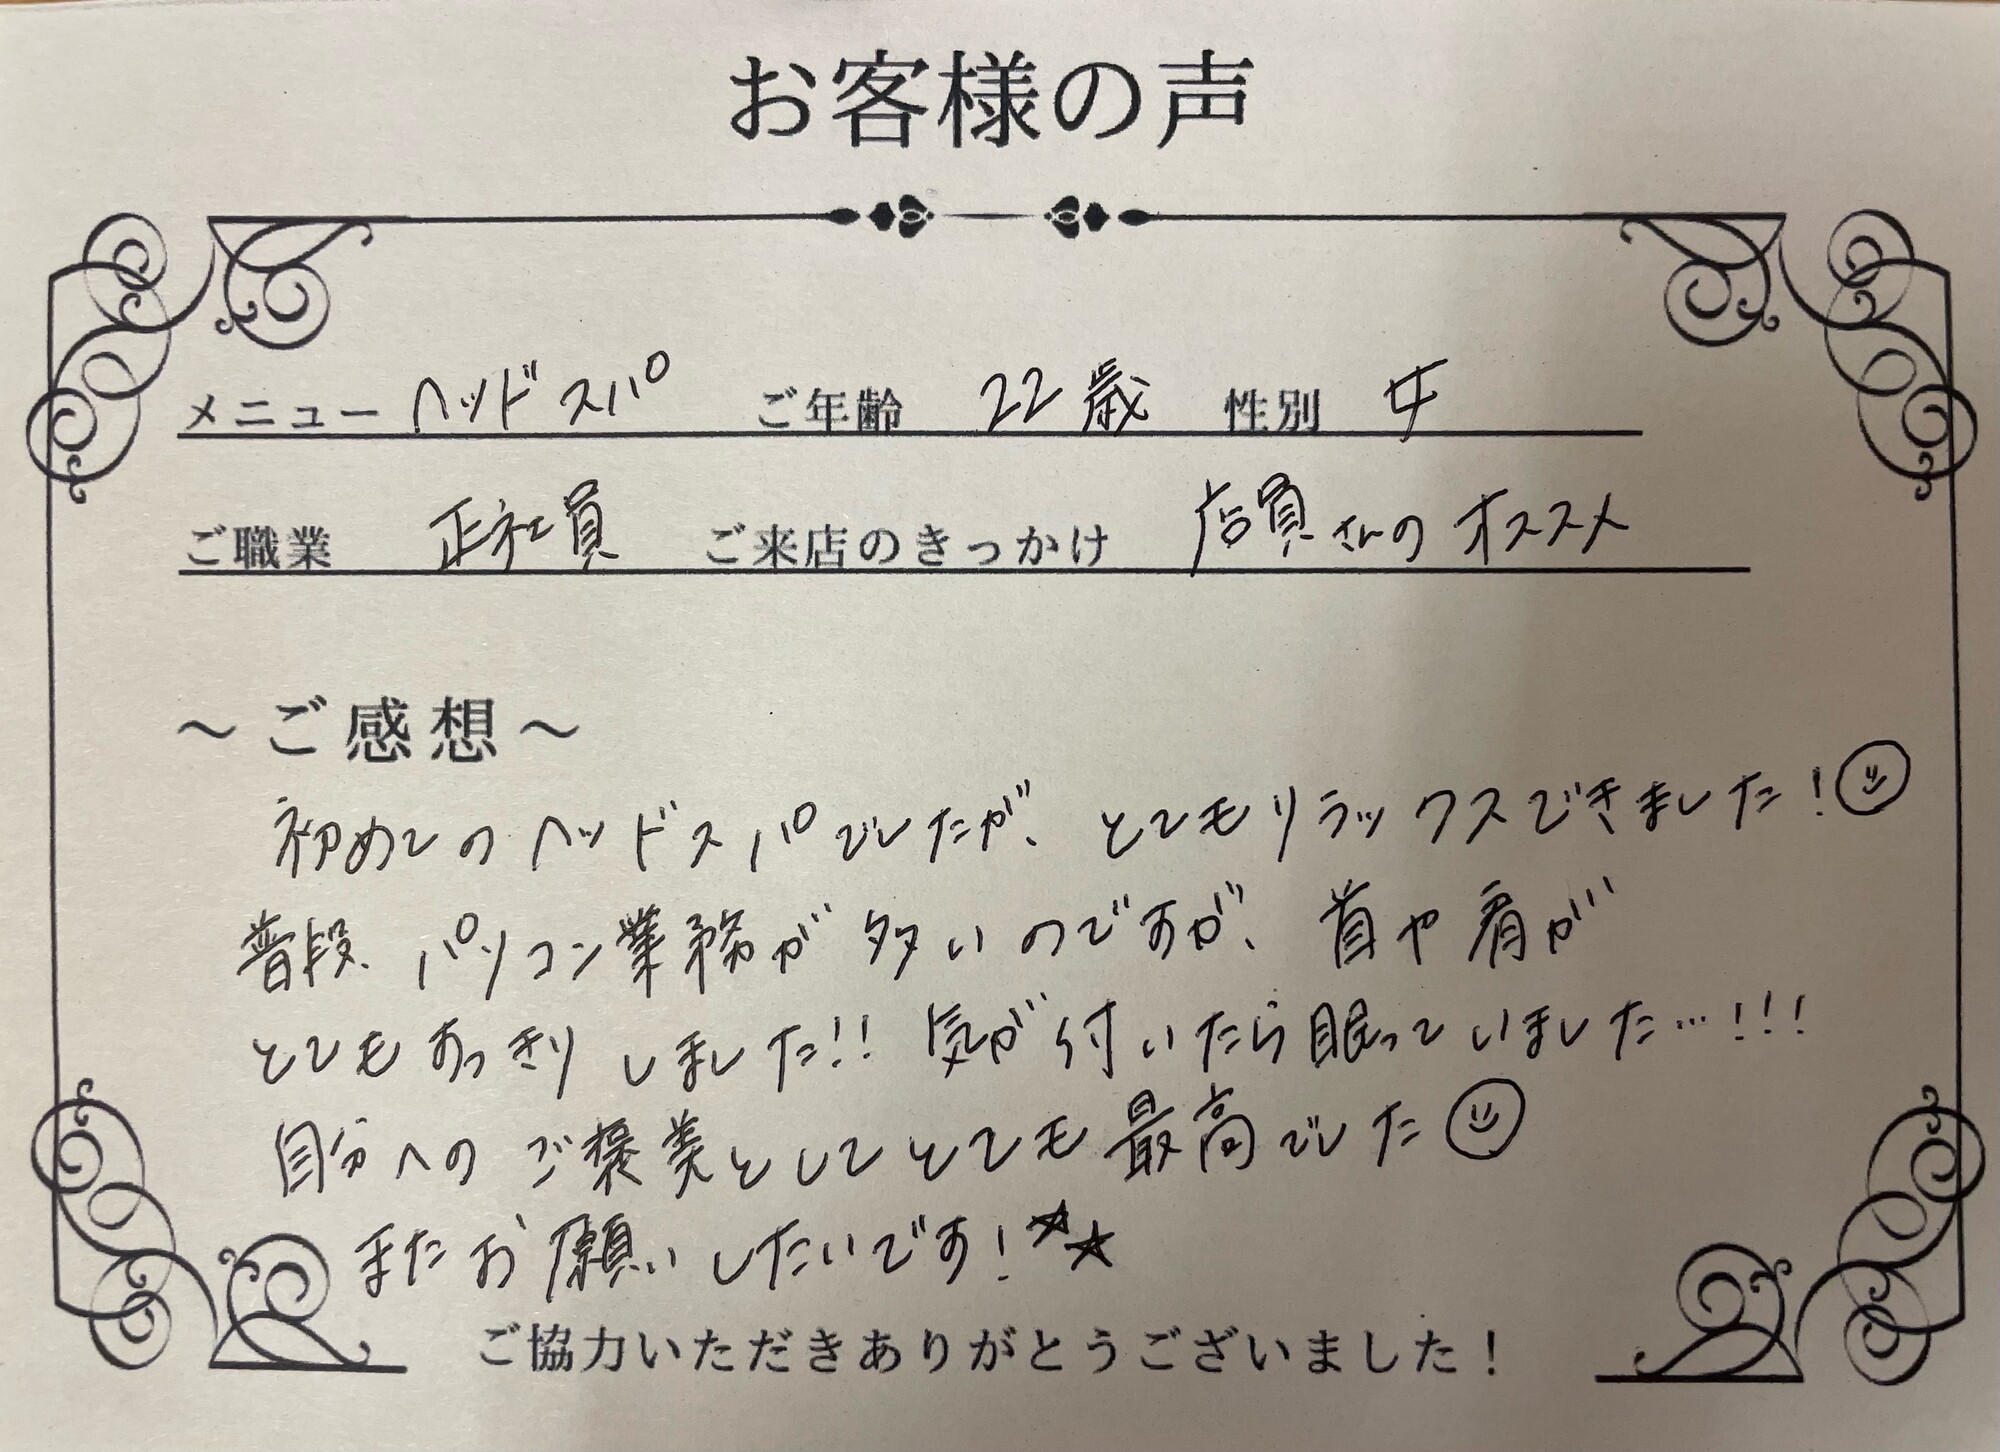 お客様の声
メニュー ヘッドスパ ご年齢 22歳 性別 女
ご職業 正社員 ご来店のきっかけ 店員さんのオススメ
～ご感想～
初めてのヘッドスパでしたが、とてもリラックスできました!
普段、パソコン業務が多いのですが、首や肩が
とてもすっきりしました!! 気が付いたら眠っていました…!!!
自分へのご褒美としてとても最高でした
またお願いしたいです!
ご協力いただきありがとうございました!